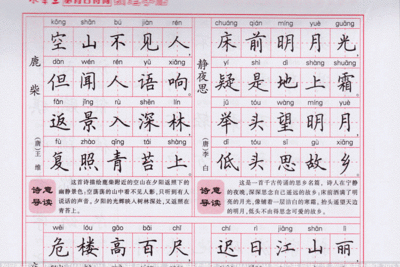 kōng shān bú jiàn rén
空山不见人
dàn wén rén yǔ xiǎng
但闻人语响。
fǎn jǐng rù shēn lín
返景入深林
fù zhào qīng tái shàng
复照青苔上。
鹿柴
(唐)王维
诗意导读
这首诗描绘鹿柴附近的空山在夕阳返照下的幽静景色。空荡荡的山中看不见人影，只听到有人说话的声音。夕阳的光辉映入树林深处，又返照在青苔上。
chuáng qián míng yuè guāng
床前明月光
yí shì dì shàng shuāng
疑是地上霜。
jǔ tóu wàng míng yuè
举头望明月
dī tóu sī gù xiāng
低头思故乡。
静夜思
(唐)李白
诗意导读
这是一首千古传诵的思乡名篇。诗人在宁静的夜晚，深深思念自己遥远的故乡；床前洒满了明亮的月光，像铺着一层洁白的霜，抬头遥望天边的明月，低头不由得思念可爱的故乡。
wēi lóu gāo bǎi chǐ
危楼高百尺
chí rì jiāng shān lì
迟日江山丽